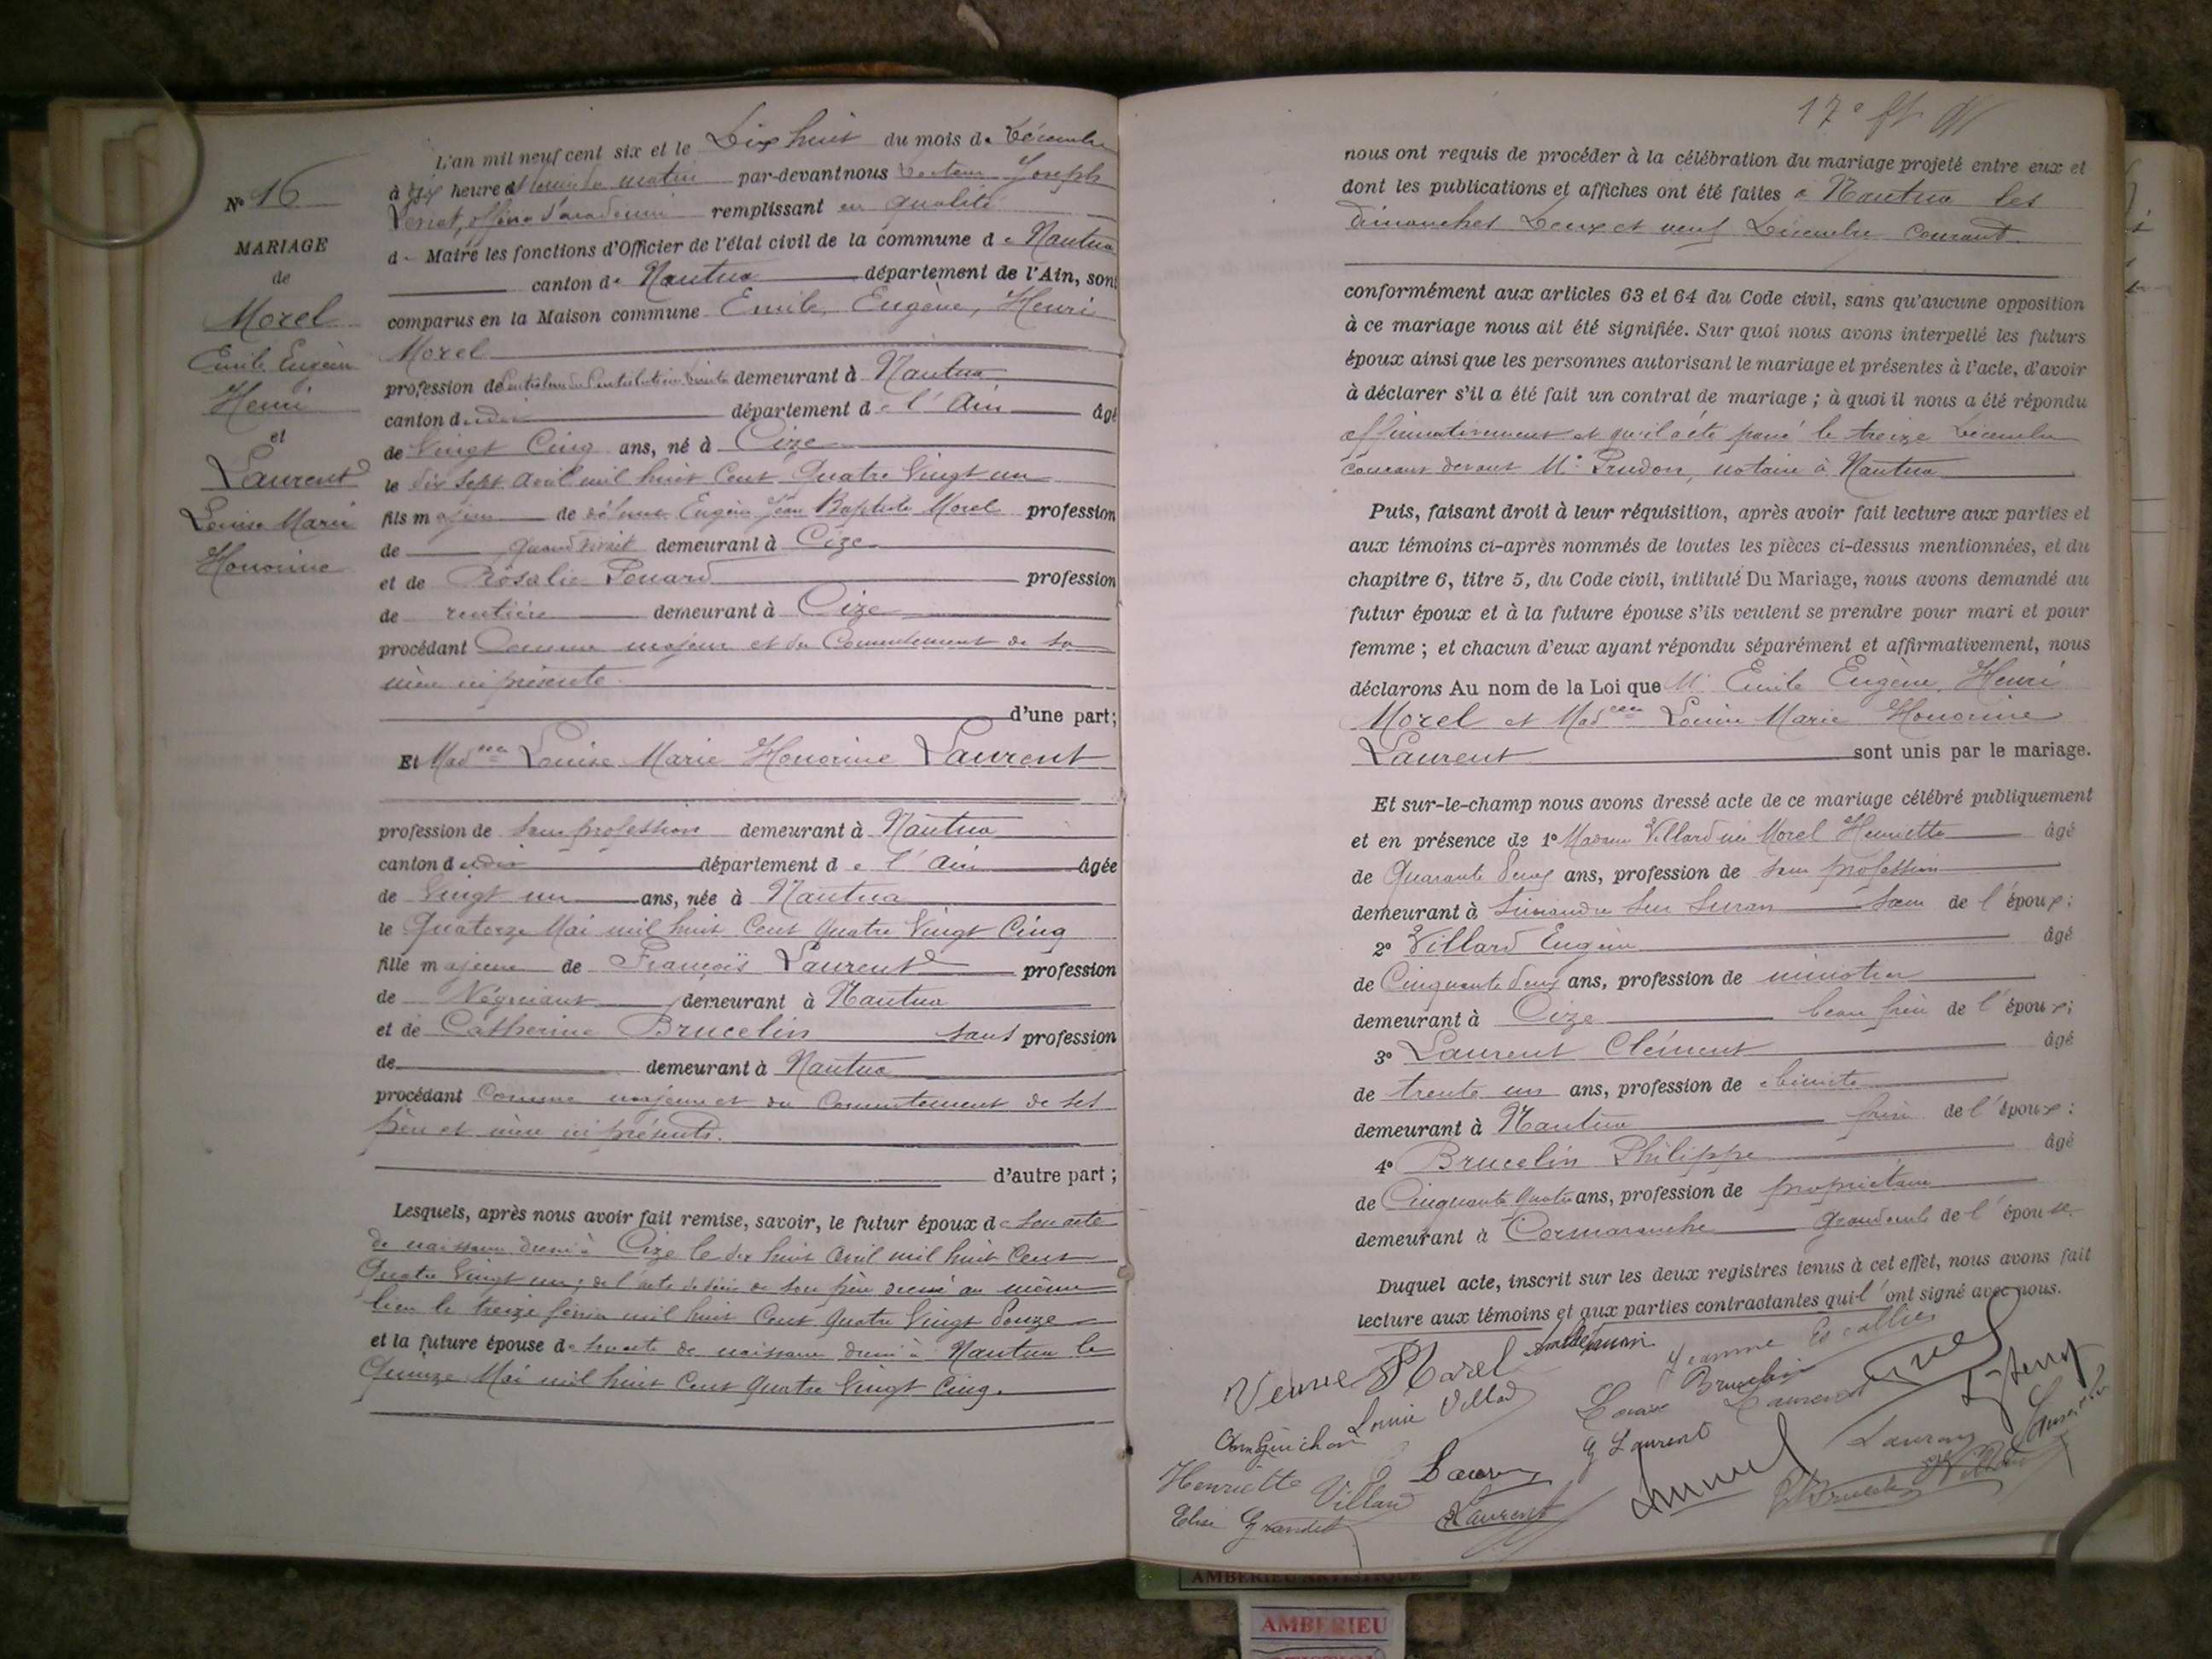 N° 16
MARIAGE
de
Morel
Emile Eugène
Henri
et
Laurent
Louise Marie
Honorine
L'an mil neuf cent six et le Dix huit du mois de Décembre
à dix heures du matin par-devant nous Docteur Joseph
officier d'académie remplissant en qualité
de Maire les fonctions d'Officier de l'état civil de la commune de Nantua
canton de Nantua département de l'Ain, sont
comparus en la Maison commune Emile, Eugène, Henri
Morel
profession de demeurant à Nantua
canton dudit département de l'Ain âgé
de Vingt Cinq ans, né à Cize
le dix sept avril mil huit Cent Quatre Vingt un
fils majeur de défunt Eugène Jean Baptiste Morel profession
de quand vivait demeurant à Cize
et de Rosalie profession
de rentière demeurant à Cize
procédant Comme majeur et du Consentement de sa
mère ici présente.
d'une part;
Et Madelle Louise Marie Honorine Laurent
profession de sans profession demeurant à Nantua
canton dudit département de l'Ain âgée
de Vingt un ans, née à Nantua
le Quatorze Mai mil huit Cent quatre Vingt Cinq
fille majeure de François Laurent profession
de Négociant demeurant à Nantua
et de Catherine Brucelin sans profession
de demeurant à Nantua
procédant Comme majeure et du Consentement de ses
père et mère ici présents.
d'autre part;
Lesquels, après nous avoir fait remise, savoir, le futur époux de son acte
de naissance dressé à Cize le dix huit Avril mil huit Cent
Quatre Vingt un; de l'acte de décès de son père dressé au même
lieu le treize février mil huit Cent quatre Vingt Douze
et la future épouse de son acte de naissance dressé à Nantua le
Quinze Mai mil huit Cent quatre Vingt Cinq.
17e ft
nous ont requis de procéder à la célébration du mariage projeté entre eux et
dont les publications et affiches ont été faites à Nantua les
dimanches Deux et neuf Décembre Courant
conformément aux articles 63 et 64 du Code civil, sans qu'aucune opposition
à ce mariage nous ait été signifiée. Sur quoi nous avons interpellé les futurs
époux ainsi que les personnes autorisant le mariage et présentes à l'acte, d'avoir
à déclarer s'il a été fait un contrat de mariage; à quoi il nous a été répondu
affirmativement et qu'il a été passé le treize Décembre
courant devant Me Prudon, notaire à Nantua
Puis, faisant droit à leur réquisition, après avoir fait lecture aux parties et
aux témoins ci-après nommés de toutes les pièces ci-dessus mentionnées, et du
chapitre 6, titre 5, du Code civil, intitulé Du Mariage, nous avons demandé au
futur époux et à la future épouse s'ils veulent se prendre pour mari et pour
femme; et chacun d'eux ayant répondu séparément et affirmativement, nous
déclarons Au nom de la Loi que Mr Emile Eugène Henri
Morel et Madelle Louise Marie Honorine
Laurent sont unis par le mariage.
Et sur-le-champ nous avons dressé acte de ce mariage célébré publiquement
et en présence de 1° Madame Villard née Morel Henriette âgé
de Quarante Deux ans, profession de sans profession
demeurant à Simandre sur Suran sœur de l'époux;
2° Villard Eugène âgé
de Cinquante deux ans, profession de minotier
demeurant à Cize beau frère de l'époux;
3° Laurent Clément âgé
de trente un ans, profession de
demeurant à Nantua frère de l'épouse:
4° Brucelin Philippe âgé
de Cinquante quatre ans, profession de propriétaire
demeurant à Cormaranche de l'épouse.
Duquel acte, inscrit sur les deux registres tenus à cet effet, nous avons fait
lecture aux témoins et aux parties contractantes qui l'ont signé avec nous.
Veuve Morel
Jeanne Escallier
Louise Brucelin
Laurent
Louise Villard
G Laurent
Henriette Villard
Laurent
Elise Grandet
Laurent
AMBERIEU ARTISTIQUE
AMBERIEU